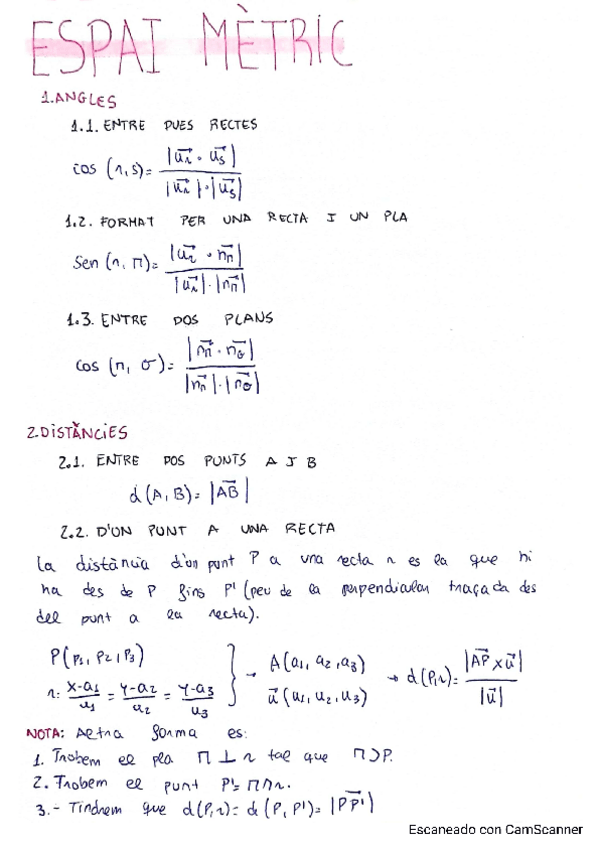 ESPAI MÈTRIC
1.ANGLES
1.1. ENTRE DUES RECTES
cos (r,s)= |u⃗r · u⃗s| / |u⃗r|·|u⃗s|
1.2. FORMAT PER UNA RECTA I UN PLA
Sen (r, π)= |u⃗r · n⃗π| / |u⃗r|·|n⃗π|
1.3. ENTRE DOS PLANS
cos (π, σ)= |n⃗π · n⃗σ| / |n⃗π|·|n⃗σ|
2.DISTÀNCIES
2.1. ENTRE DOS PUNTS A I B
d(A,B)= |AB⃗|
2.2. D'UN PUNT A UNA RECTA
La distància d'un punt P a una recta r es la que hi
ha des de P fins P' (peu de la perpendicular traçada des
del punt a la recta).
P(p1, p2, p3)
r: x-a1/u1 = y-a2/u2 = y-a3/u3 } → A(a1, a2, a3) u⃗(u1, u2, u3) → d(P,r)= |AP⃗ x u⃗| / |u⃗|
NOTA: Altra forma es:
1. Trobem el pla π ⊥ r tal que π ⊃ P.
2. Trobem el punt P'= π∩r.
3.- Tindrem que d(P,r)= d(P, P')= |PP'⃗|
Escaneado con CamScanner